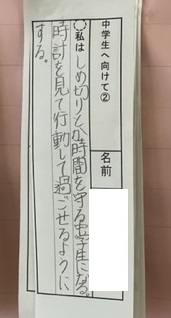 中学生へ向けて②
名前
○私はしめ切りや時間を守る中学生になる。
時計を見て行動して過ごせるように
する。